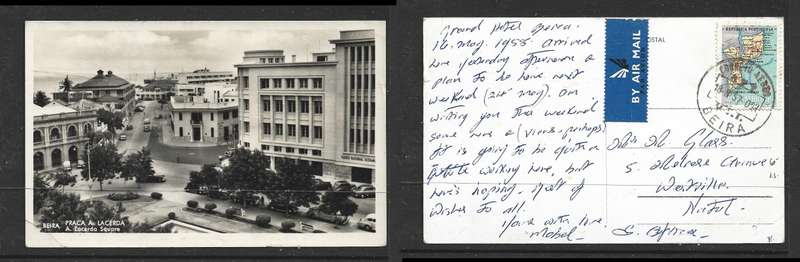 BEIRA PRAÇA A. LACERDA
A. Lacerda Square
Grand Hotel Beira.
16. May. 1955. Arrived
here yesterday afternoon &
plan to be here next
weekend (21st May). Am
writing you this weekend
some more a (views perhaps)
It is going to be quite a
writing here, but
here's hoping. Best of
wishes to all.
Yours with love,
Mabel.
BY AIR MAIL
POSTAL
REPUBLICA PORTUGUESA
BEIRA
Mrs M. Glass.
5. Melrose
Westville
Natal.
S. Africa.